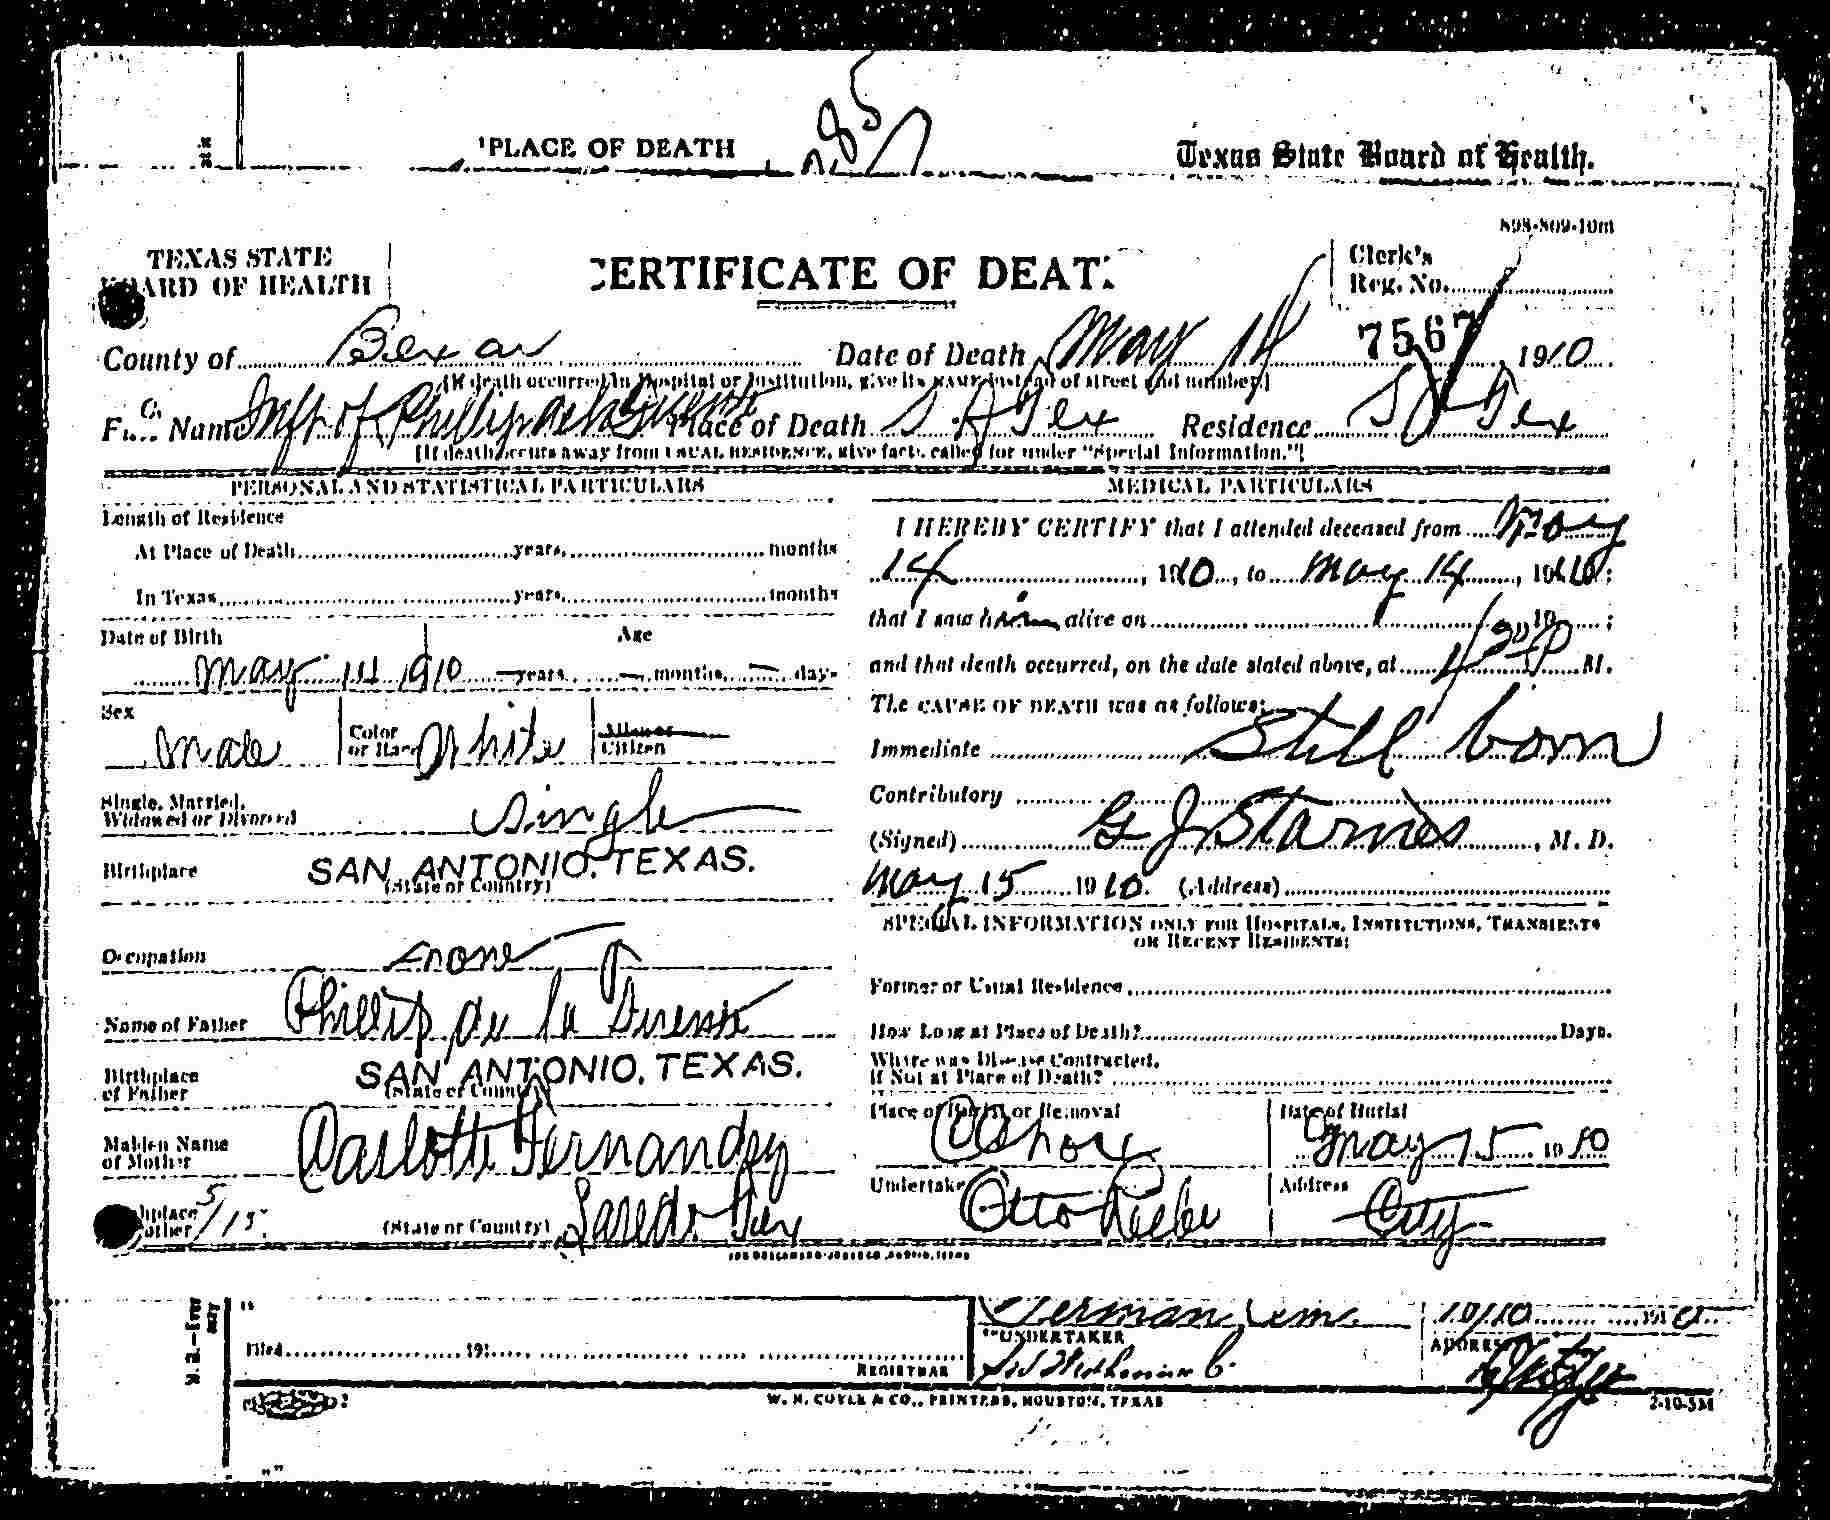 ¹PLACE OF DEATH 85
Texas State Board of Health.
898-809-10m
TEXAS STATE
BOARD OF HEALTH
CERTIFICATE OF DEAT
Clerk's
Reg. No.
7567
County of Bexar Date of Death May 14 1910
(If death occurred in Hospital or Institution, give its NAME instead of street and number.)
Full Name Inft of Phillip de la Fuente Place of Death S A Tex Residence S A Tex
[If death occurs away from USUAL RESIDENCE, give facts called for under "Special Information."]
PERSONAL AND STATISTICAL PARTICULARS
Length of Residence
At Place of Death years, months
In Texas years, months
Date of Birth Age
May 14 1910 — years — months, — days
Sex Male Color or Race White Alien or Citizen
Single, Married,
Widowed or Divorced Single
Birthplace SAN ANTONIO, TEXAS.
(State or Country)
Occupation none
Name of Father Phillip de la Fuente
Birthplace
of Father SAN ANTONIO, TEXAS.
(State or Country)
Maiden Name
of Mother Carlotte Fernandez
Birthplace
of Mother 5/15 (State or Country) Laredo Tex
MEDICAL PARTICULARS
I HEREBY CERTIFY that I attended deceased from May
14, 1910, to May 14, 1910;
that I saw him alive on 19 ;
and that death occurred, on the date stated above, at P M.
The CAUSE OF DEATH was as follows:
Immediate Still born
Contributory
(Signed) G J Starnes, M. D.
May 15 1910. (Address)
SPECIAL INFORMATION ONLY FOR HOSPITALS, INSTITUTIONS, TRANSIENTS
OR RECENT RESIDENTS:
Former or Usual Residence
How Long at Place of Death? Days.
Where was Disease Contracted,
If Not at Place of Death?
Place of Burial or Removal Date of Burial
May 15 1910
Undertaker Otto Address City
Herman Cem. 10/10 1910
Filed 191
REGISTRAR
UNDERTAKER
ADDRESS
W. H. COYLE & CO., PRINTERS, HOUSTON, TEXAS
2-10-5M